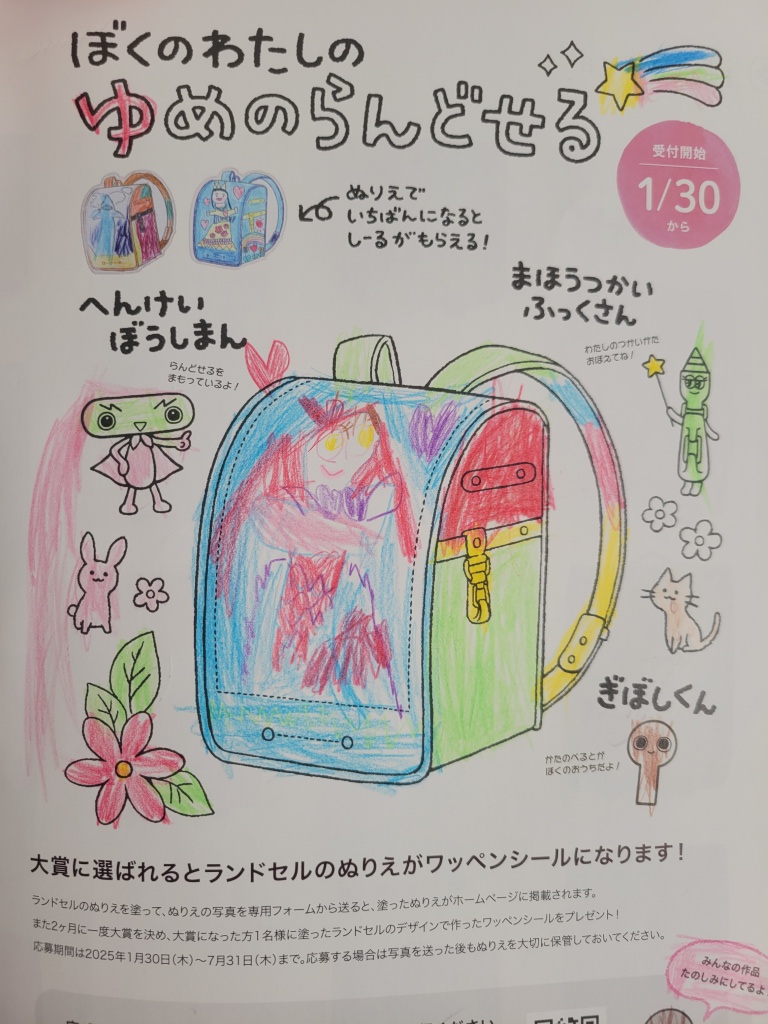 ぼくのわたしの
ゆめのらんどせる
受付開始
1/30
から
ぬりえで
いちばんになると
しーるがもらえる!
へんけい
ぼうしまん
らんどせるを
まもっているよ!
まほうつかい
ふっくさん
わたしのつかいかた
おぼえてね!
ぎぼしくん
かたのべるとが
ぼくのおうちだよ!
大賞に選ばれるとランドセルのぬりえがワッペンシールになります!
ランドセルのぬりえを塗って、ぬりえの写真を専用フォームから送ると、塗ったぬりえがホームページに掲載されます。
また2ヶ月に一度大賞を決め、大賞になった方1名様に塗ったランドセルのデザインで作ったワッペンシールをプレゼント!
応募期間は2025年1月30日(木)〜7月31日(木)まで。応募する場合は写真を送った後もぬりえを大切に保管しておいてください。
みんなの作品
たのしみにしてるよ